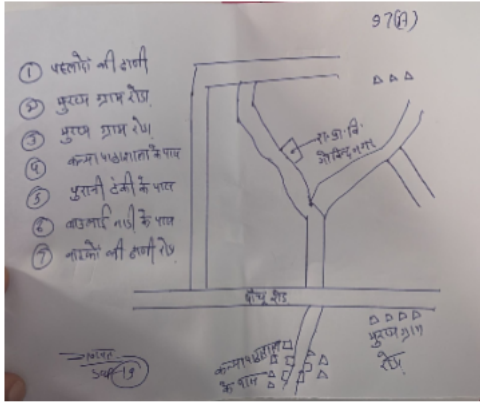 97(A)
① पहलादो की ढाणी
② मुख्य ग्राम रोड़
③ मुख्य ग्राम रोड़
④ कन्या पाठशाला के पास
⑤ पुरानी टंकी के पास
⑥ नाडी के पास
⑦ की ढाणी रोड़
रा. प्रा. वि.
गोविन्द नगर
पाँचू रोड
मुख्य ग्राम
रोड़
कन्या पाठशाला
के पास